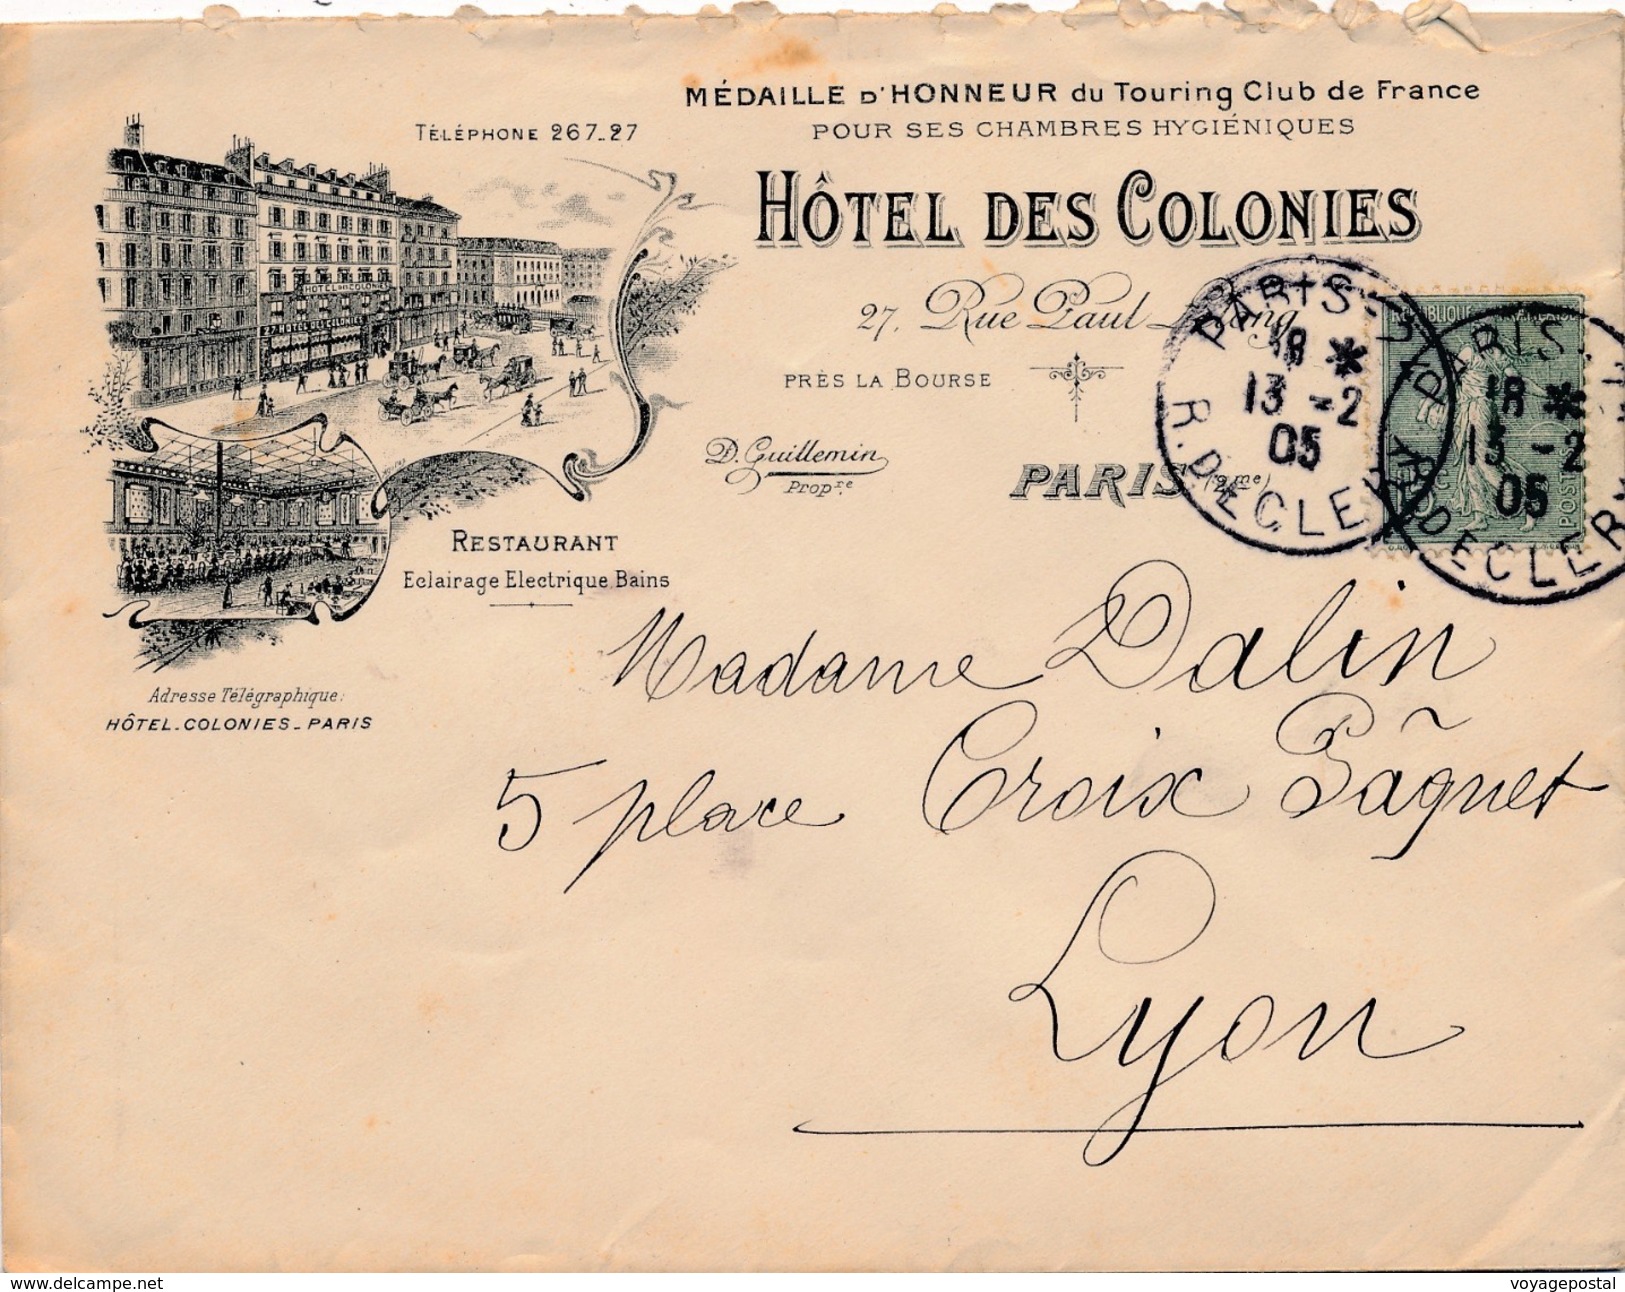 MÉDAILLE D'HONNEUR du Touring Club de France
POUR SES CHAMBRES HYGIÉNIQUES
TÉLÉPHONE 267-27
HÔTEL DES COLONIES
27, Rue Paul Lelong
PRÈS LA BOURSE
D. Guillemin
Propre
PARIS (2me)
HOTEL DES COLONIES
27 HOTEL DES COLONIES
RESTAURANT
Eclairage Electrique Bains
Adresse Télégraphique:
HÔTEL-COLONIES-PARIS
PARIS
18 *
13 -2
05
R. DE CLERY
PARIS
18 *
13 -2
05
R. DE CLERY
POSTES
Madame Dalin
5 place Croix Pâquet
Lyon
www.delcampe.net
voyagepostal